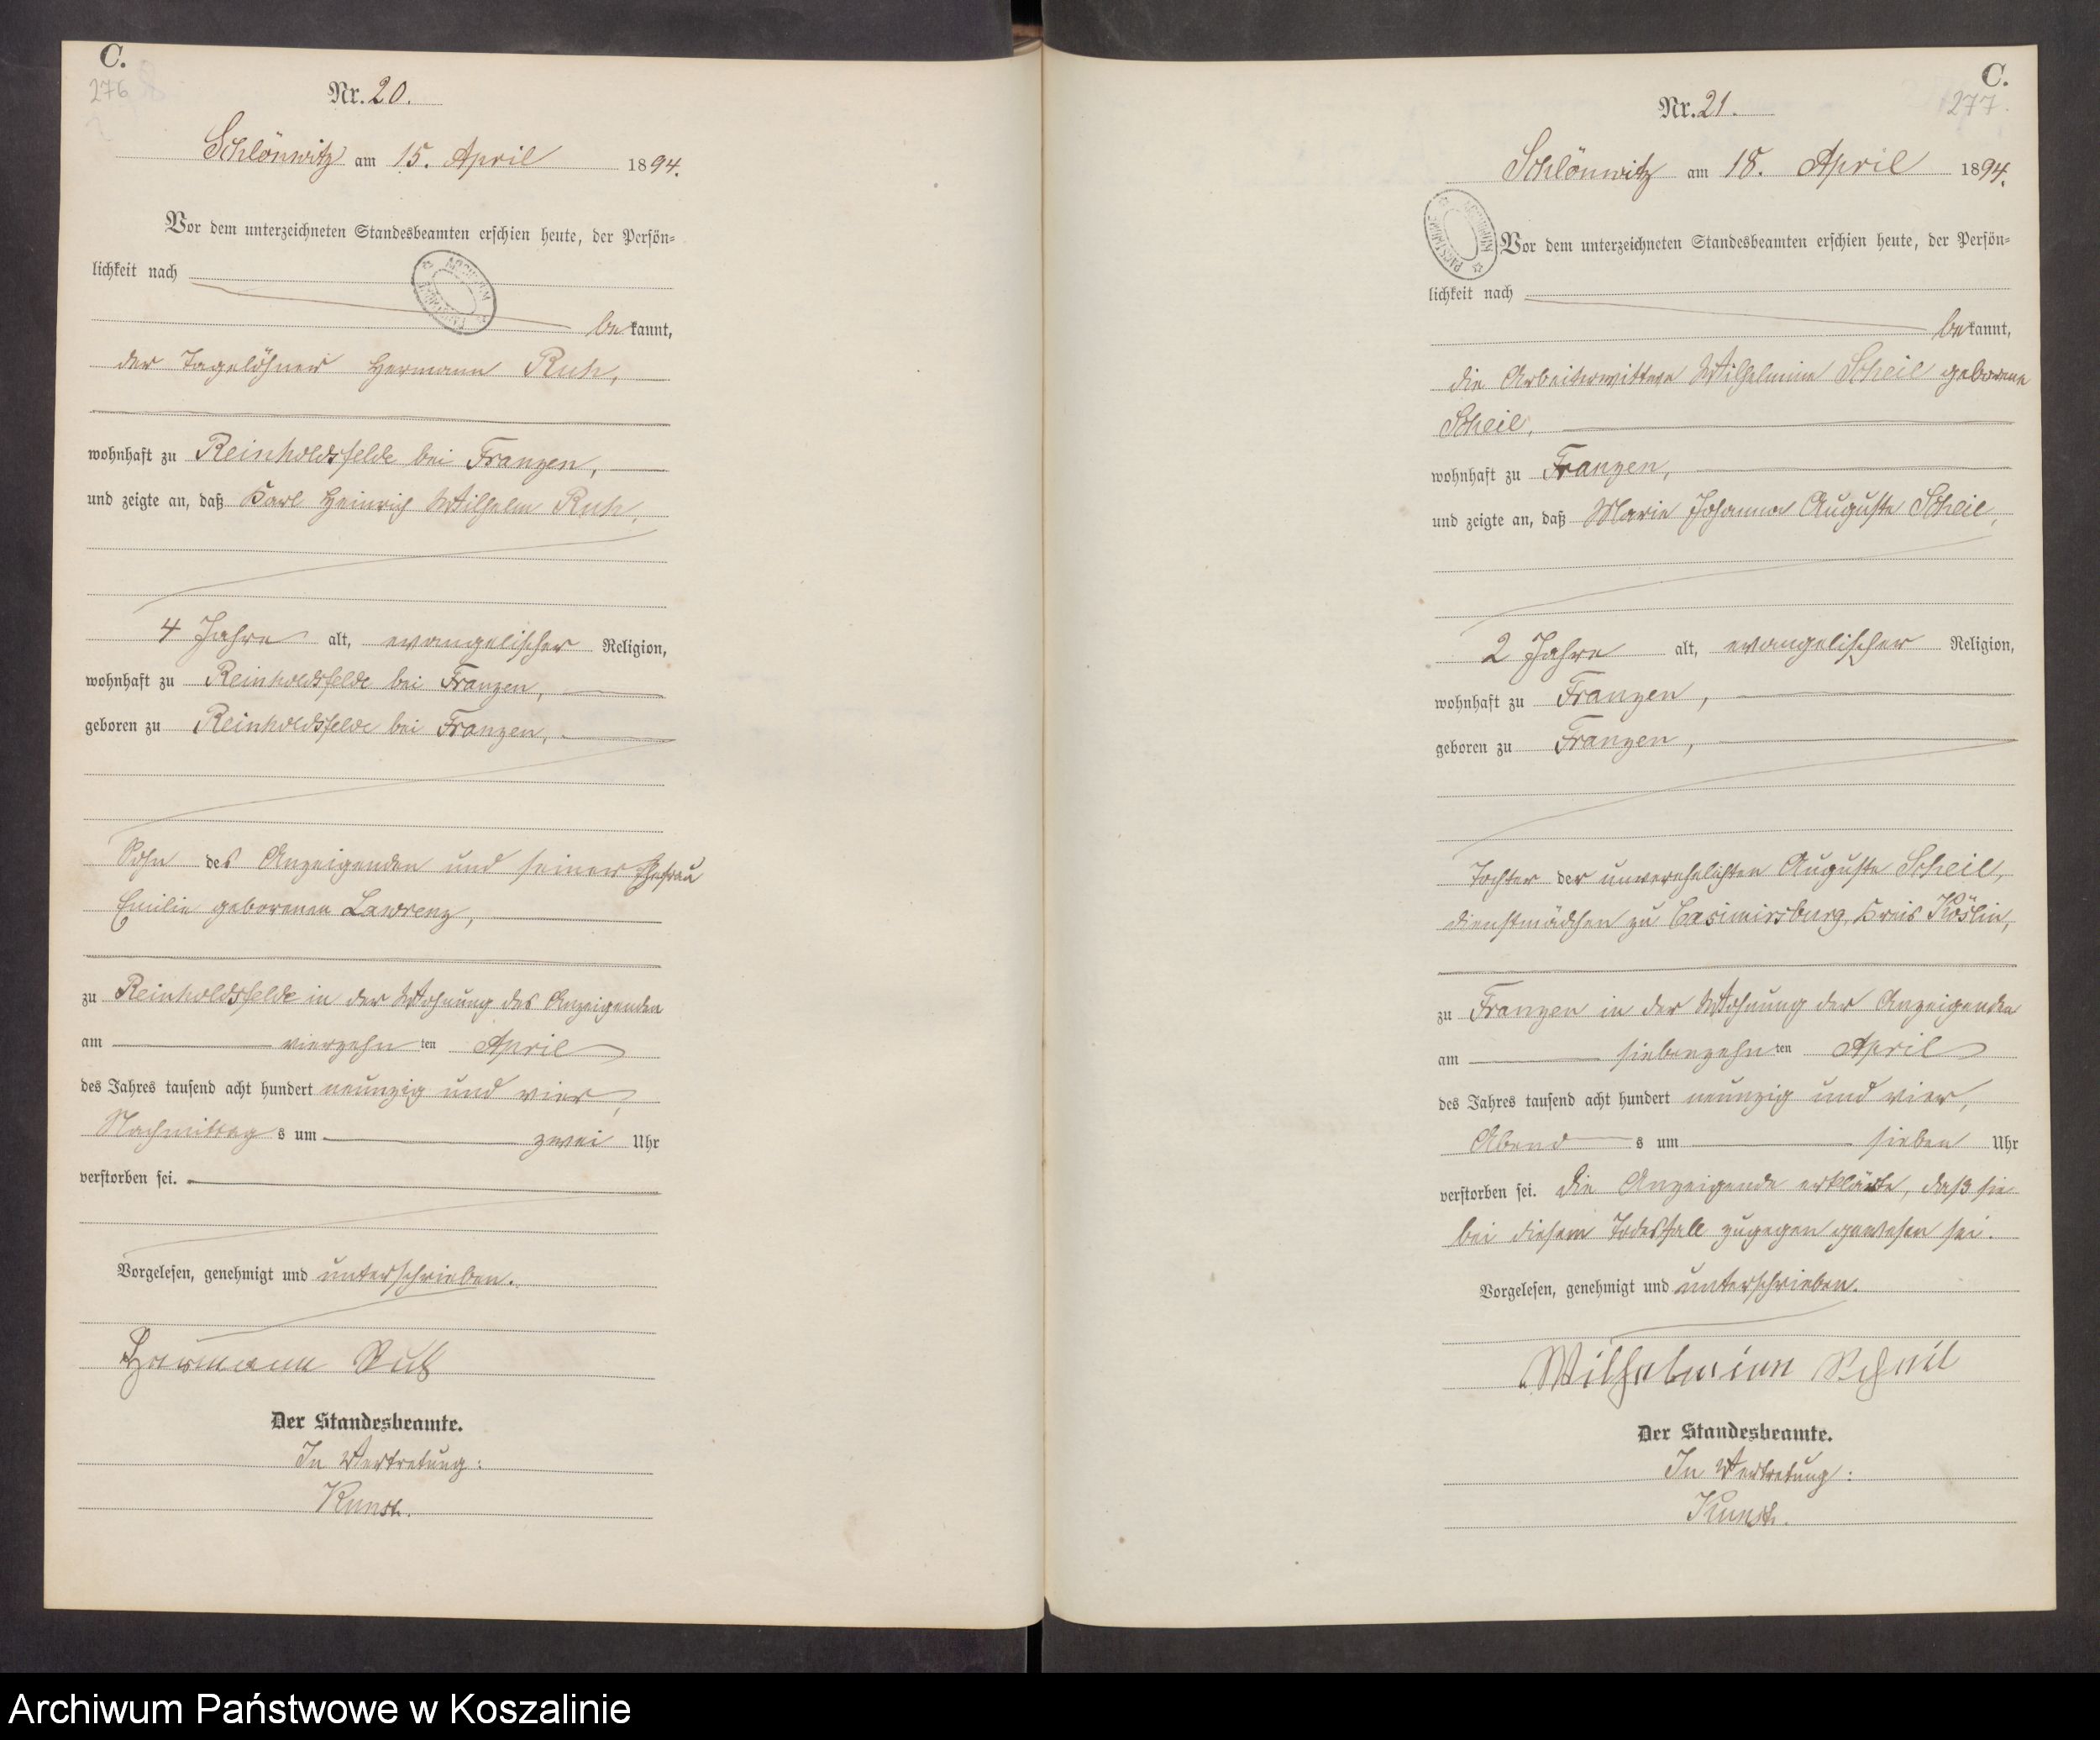 C.
276
Nr. 20.
Schlönwitz am 15. April 1894.
Vor dem unterzeichneten Standesbeamten erschien heute, der Persön=
lichkeit nach
bekannt,
der Tagelöhner Hermann Ruh,
wohnhaft zu Reinholdsfelde bei Franzen,
und zeigte an, daß Karl Heinrich Wilhelm Ruh,
4 Jahre alt, evangelischer Religion,
wohnhaft zu Reinholdsfelde bei Franzen,
geboren zu Reinholdsfelde bei Franzen,
Sohn des Anzeigenden und seiner Ehefrau
Emilie geborenen Lawrenz,
zu Reinholdsfelde in der Wohnung des Anzeigenden
am vierzehnten April
des Jahres tausend acht hundert neunzig und vier,
Nachmittags um zwei Uhr
verstorben sei.
Vorgelesen, genehmigt und unterschrieben.
Hermann Ruh
Der Standesbeamte.
In Vertretung:
C.
277.
Nr. 21.
Schlönwitz am 18. April 1894.
Vor dem unterzeichneten Standesbeamten erschien heute, der Persön=
lichkeit nach
bekannt,
die Arbeiterwittwe Wilhelmine Scheil geborene
Scheil,
wohnhaft zu Franzen,
und zeigte an, daß Marie Johanna Auguste Scheil,
2 Jahre alt, evangelischer Religion,
wohnhaft zu Franzen,
geboren zu Franzen,
Tochter der unverehelichten Auguste Scheil,
Dienstmädchen zu Casimirsburg, Kreis Köslin,
zu Franzen in der Wohnung der Anzeigenden
am siebenzehnten April
des Jahres tausend acht hundert neunzig und vier,
Abends um sieben Uhr
verstorben sei. Die Anzeigende erklärte, daß sie
bei diesem Todesfall zugegen gewesen sei.
Vorgelesen, genehmigt und unterschrieben.
Wilhelmine Scheil
Der Standesbeamte.
In Vertretung:
Archiwum Państwowe w Koszalinie